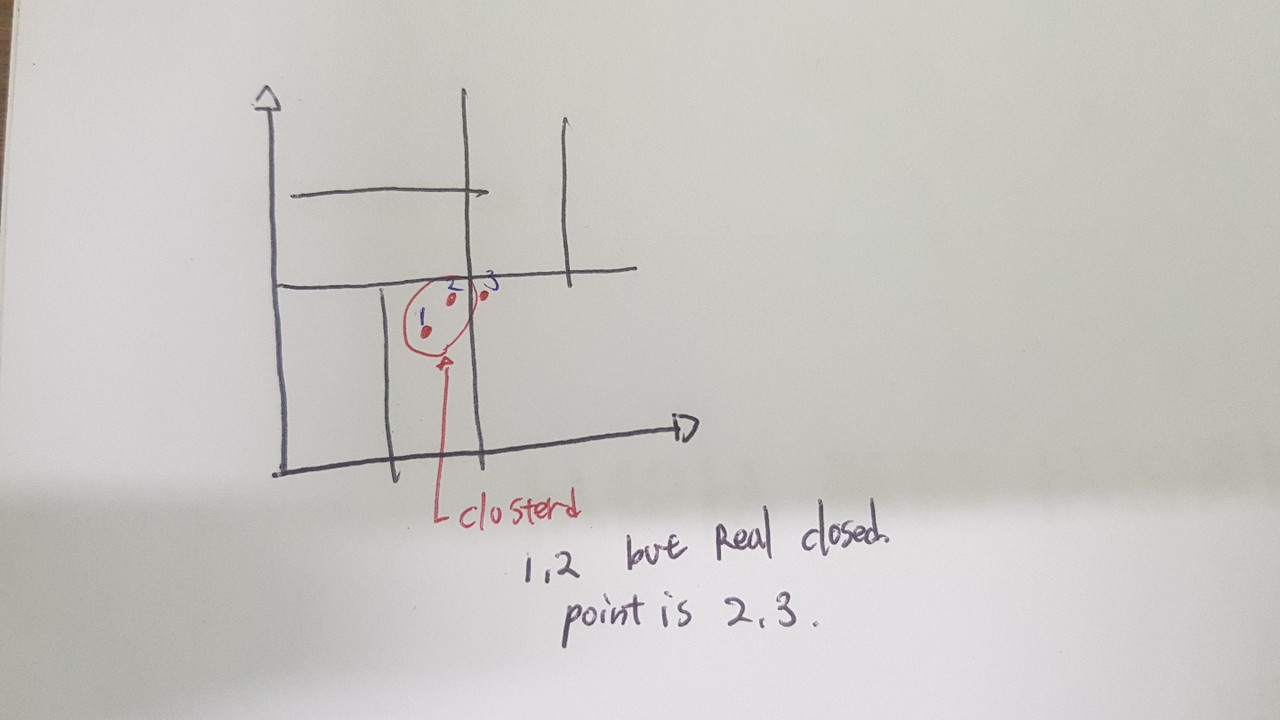 2 3
1
closterd
1,2 but Real closed.
point is 2,3.